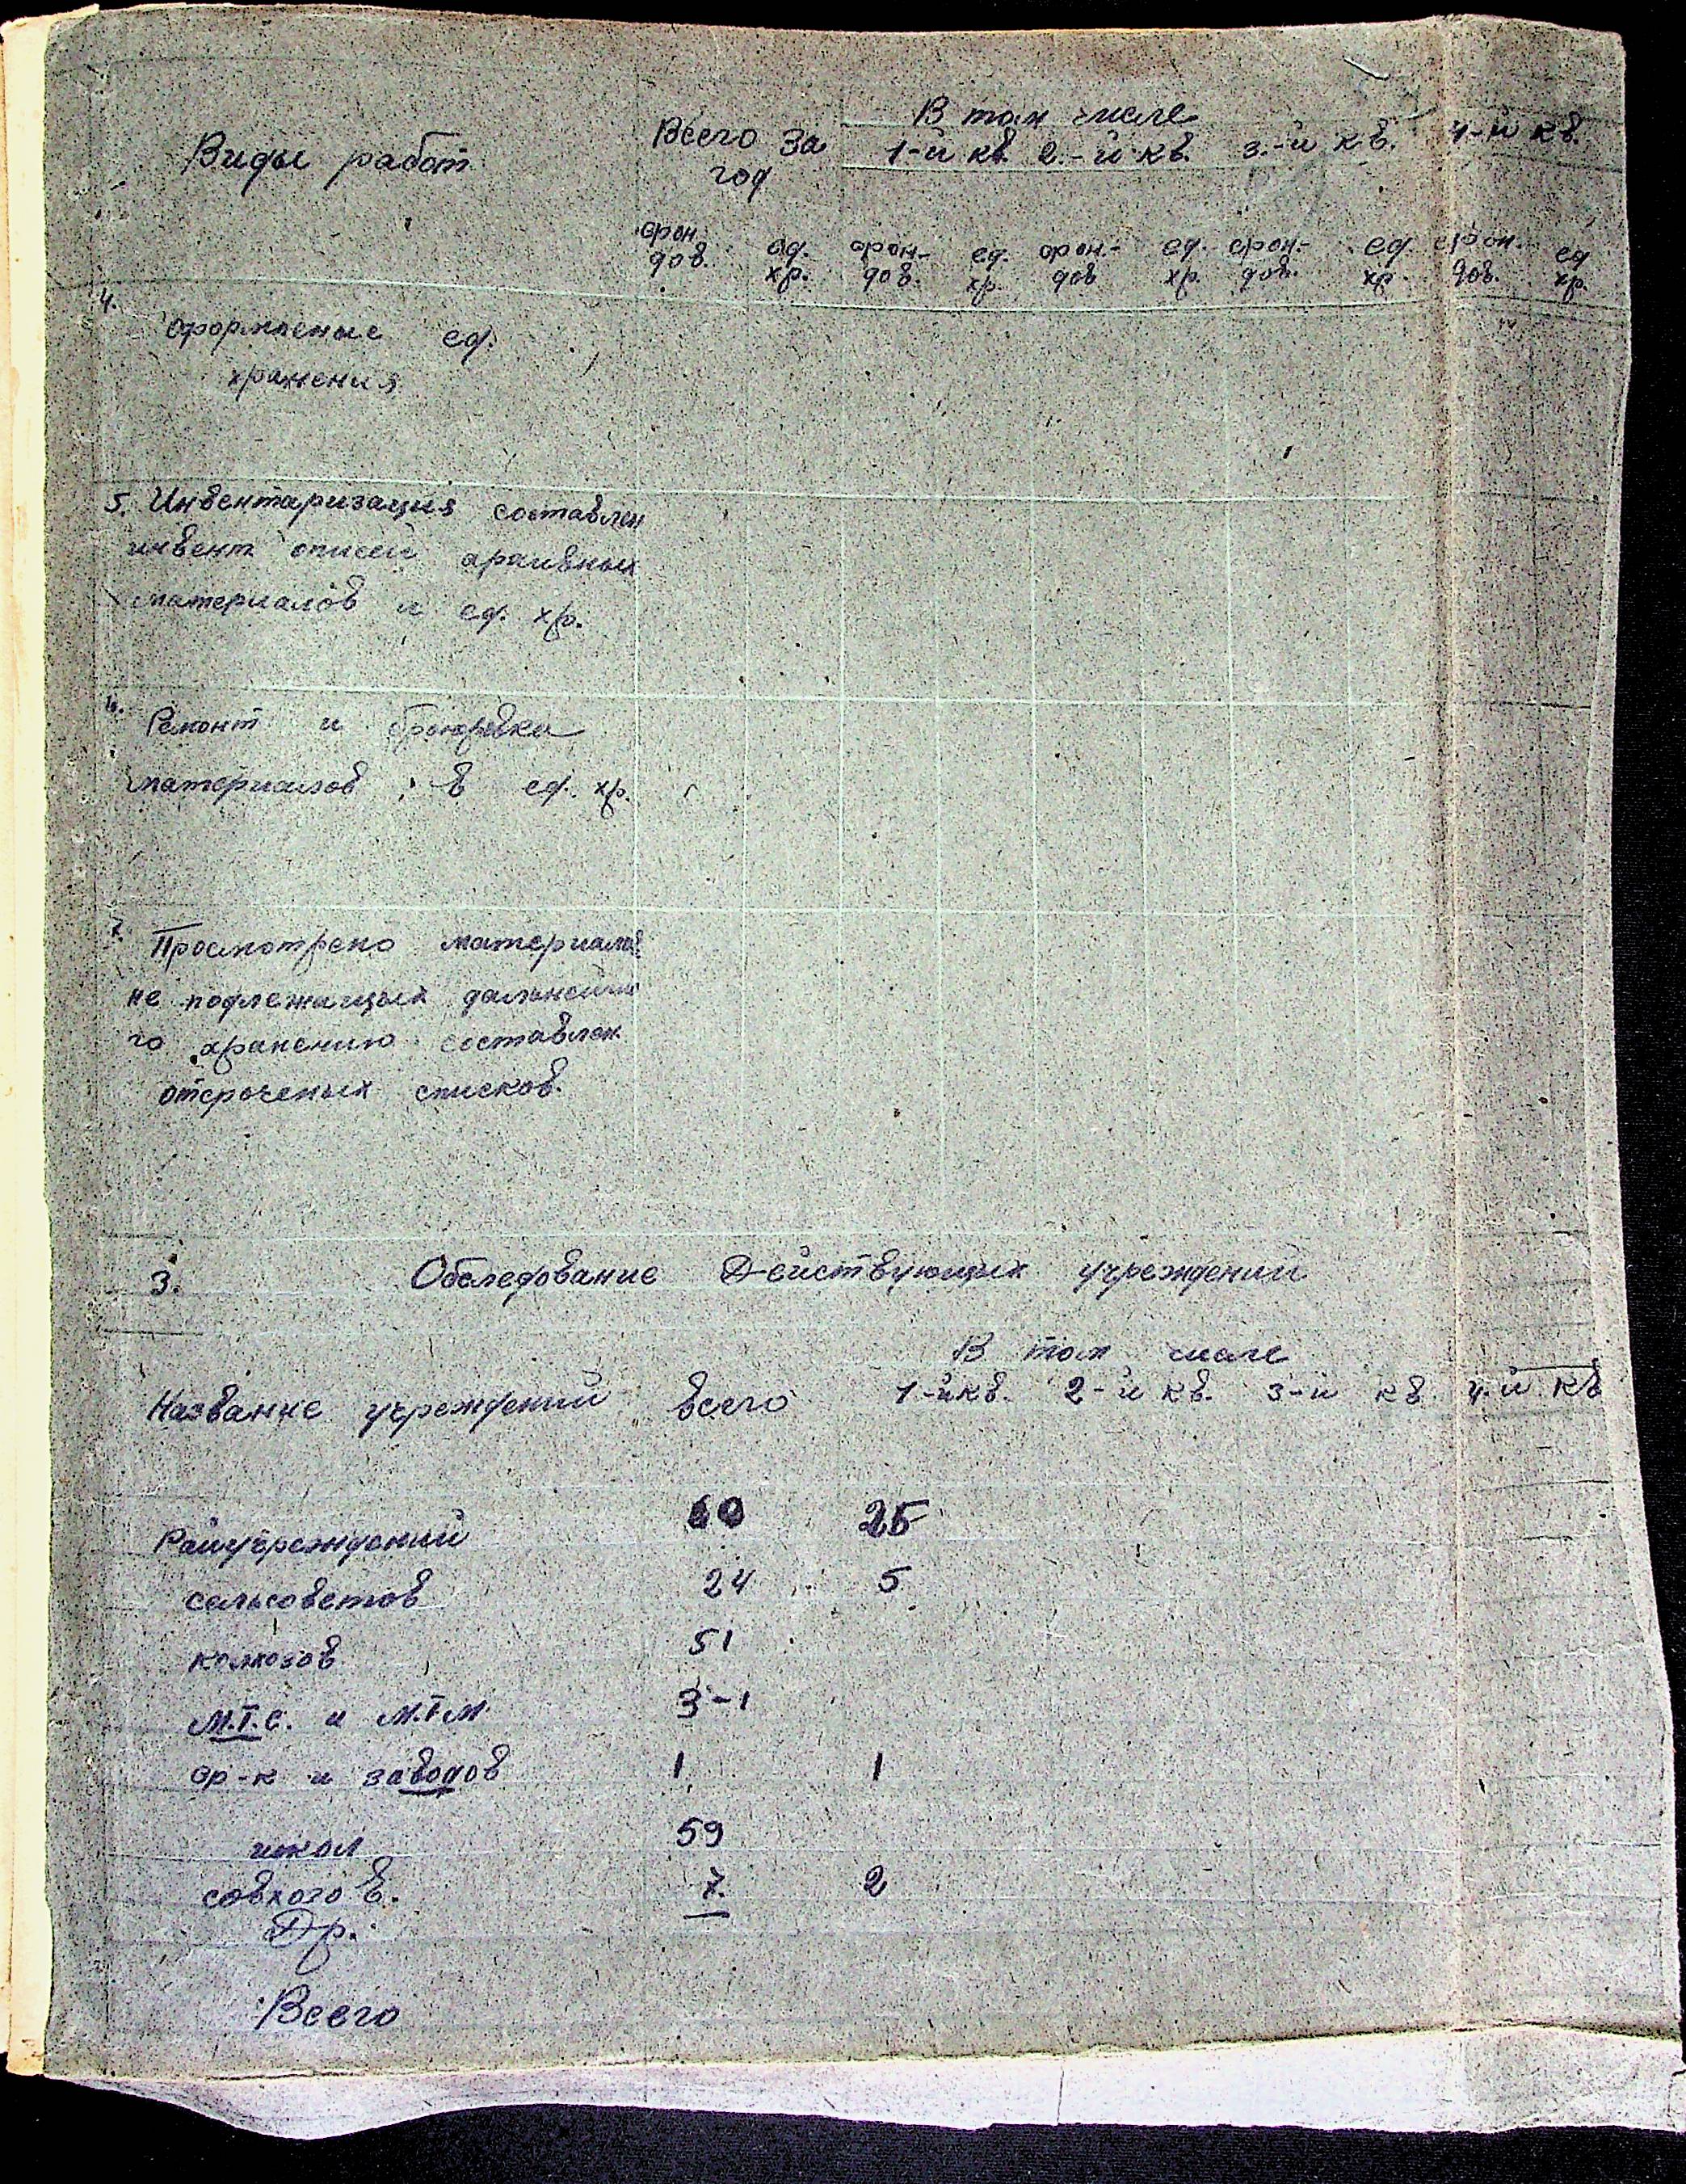 В том числе
Виды работ Всего за 1-й кв. 2-й кв. 3-й кв. 4-й кв.
год
фон- ед. фон- ед. фон- ед. фон- ед. фон- ед.
дов. хр. дов. хр. дов хр. дов. хр. дов. хр.
4.
Оформление ед.
хранения
5. Инвентаризация составлен
инвент описей архивных
материалов и ед. хр.
6. Ремонт и брошровка
материалов в ед. хр.
7. Просмотрено материалов
не подлежащих дальнейше
го хранению составлен
отсроченых списков.
3. Обследование Действующих учреждений
В том числе
Название учреждений всего 1-й кв. 2-й кв. 3-й кв 4-й кв
Райучреждений 60 25
сельсоветов 24 5
колхозов 51
М.Т.С. и М.Т.М. 3-1
ф-к и заводов 1 1
школ 59
совхозов. 7. 2
Др.
Всего